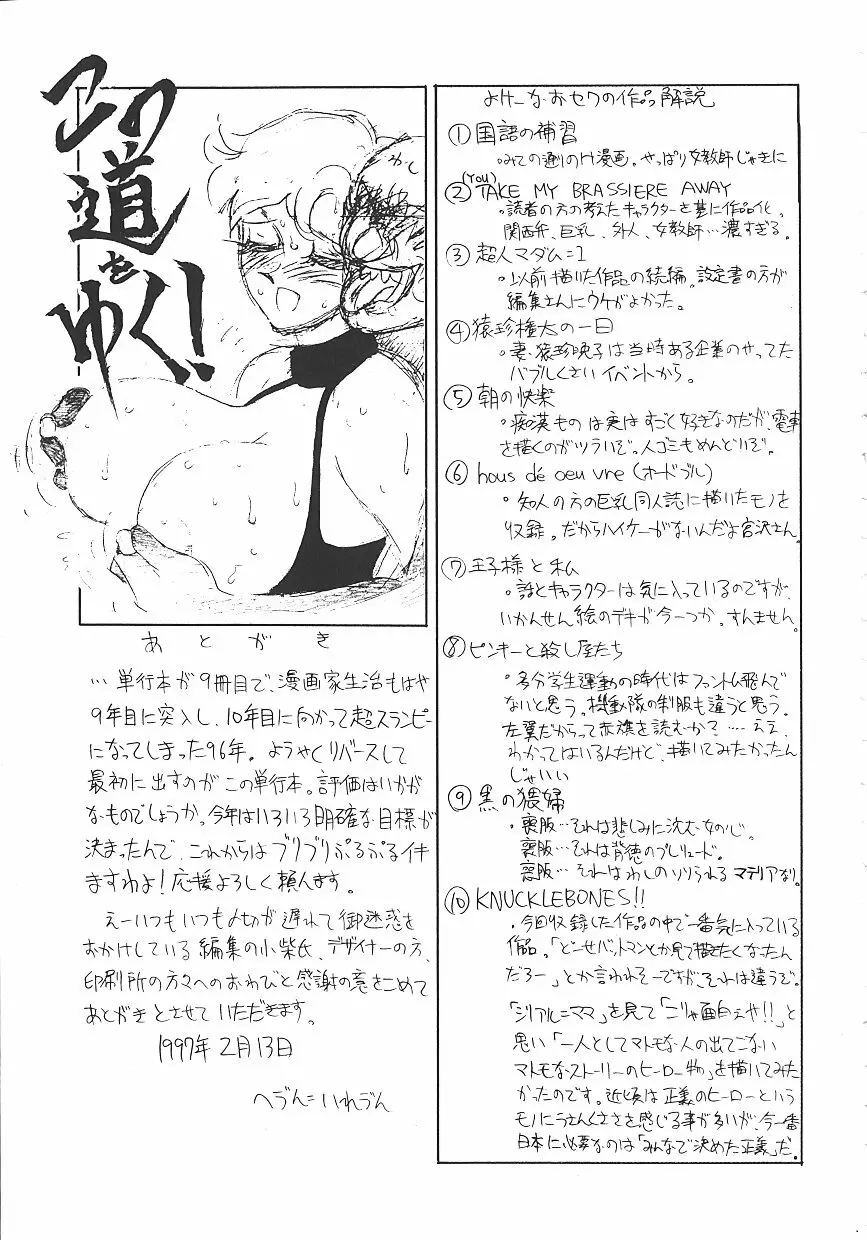 この
道
を
ゆく!
あとがき
…単行本が9冊目で、漫画家生活もはや
9年目に突入し、10年目に向かって超スランピー
になってしまった96年。ようやくリバースして
最初に出すのがこの単行本。評価はいかが
なものでしょうか。今年はいろいろ明確な目標が
決まったんで、これからはブリブリぷるぷるイキ
ますわよ!応援よろしく頼んます。
えーいつもいつも〆切が遅れて御迷惑を
おかけしている編集の小柴氏、デザイナーの方、
印刷所の方々へのおわびと感謝の意をこめて
あとがきとさせていただきます。
1997年2月13日
へづん=いれづん
よけーなおセワの作品解説
①国語の補習
・みての通りのH漫画。やっぱり女教師じゃきに
②(You) TAKE MY BRASSIERE AWAY
・読者の方の考えたキャラクターを基に作品化。
関西弁、巨乳、外人、女教師…濃すぎる。
③超人マダム=1
・以前描いた作品の続編。設定書の方が
編集さんにウケがよかった。
④猿珍権太の一日
・妻・猿珍映子は当時ある企業のやってた
バブルくさいイベントから。
⑤朝の快楽
・痴漢ものは実はすごく好きなのだが、電車
を描くのがツライぞ。人ゴミもめんどいぞ。
⑥hous de oeu vre(オードブル)
・知人の方の巨乳同人誌に描いたモノを
収録。だからハイケーがないんだよ宮沢さん。
⑦王子様と私
・話とキャラクターは気に入っているのですが、
いかんせん絵のデキが今一つか。すんません。
⑧ピンキーと殺し屋たち
・多分学生運動の時代はファントム飛んで
ないと思う。機動隊の制服も違うと思う。
左翼だからって赤旗を読むか?…ええ、
わかってはいるんだけど、描いてみたかったん
じゃいい
⑨黒の猥婦
・喪服…それは悲しみに沈む女の心。
喪服…それは背徳のプレリュード。
喪服…それはわしのソソられるマテリアなり。
⑩KNUCKLEBONES!!
・今回収録した作品の中で一番気に入っている
作品。「どーせバットマンとか見て描きたくなったん
だろー」とか言われそーですが、それは違うぞ。
「シリアル=ママ」を見て「こりゃ面白えや!!」と
思い「一人としてマトモな人の出てこない
マトモなストーリーのヒーロー物」を描いてみた
かったのです。近頃は正義のヒーローという
モノにうさんくささを感じる事が多いが、今一番
日本に必要なのは「みんなで決めた正義」だ。